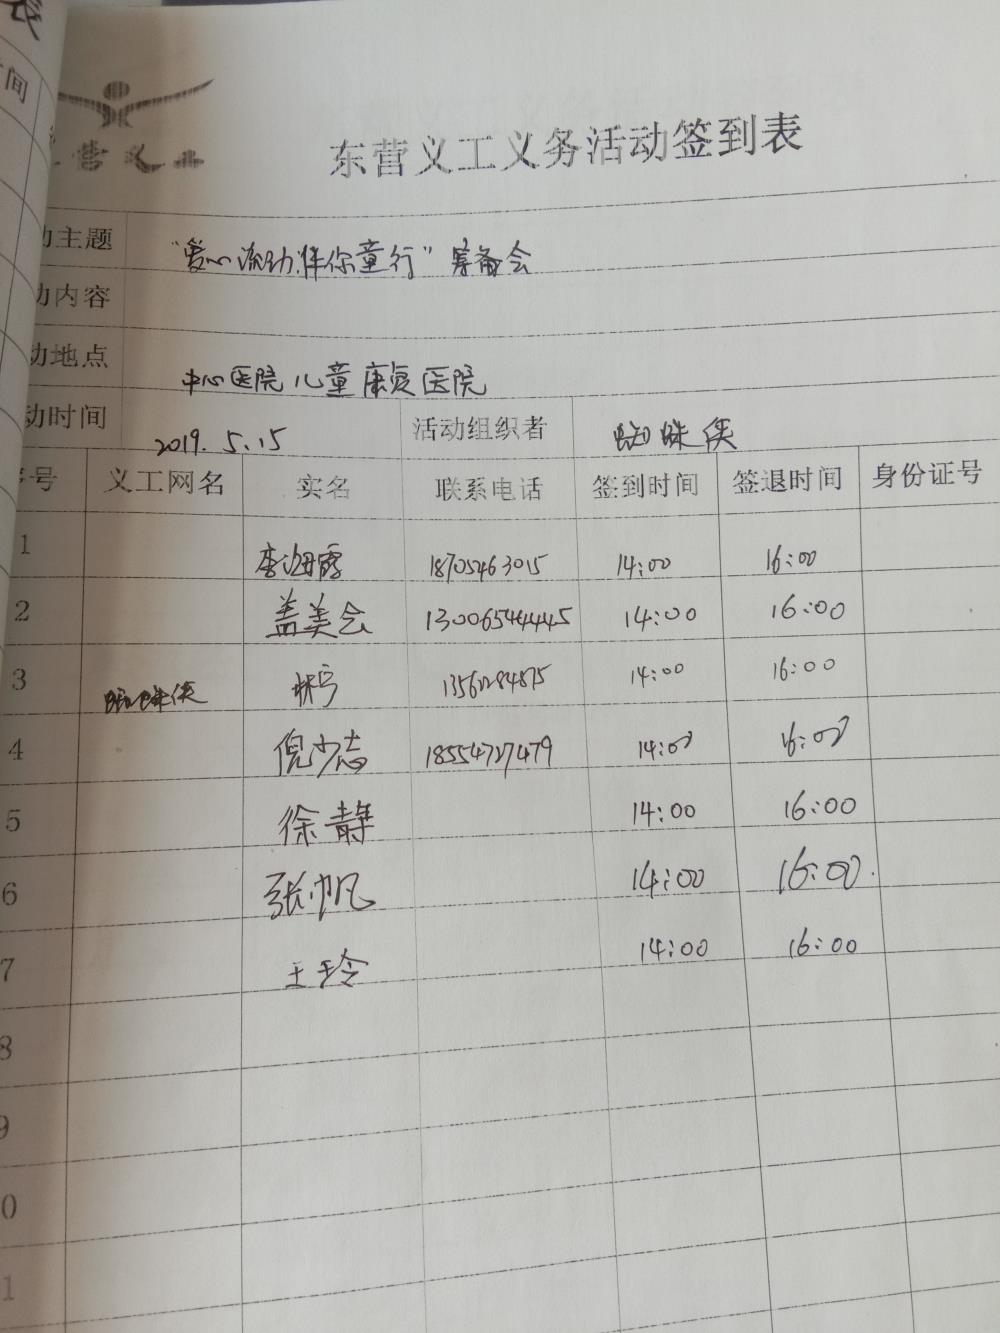 表
间
东营义工义务活动签到表
营义工
动主题 "爱心流动 伴你童行" 筹备会
动内容
动地点 中心医院儿童康复医院
动时间 2019.5.15 活动组织者 蜘蛛侠
序号 义工网名 实名 联系电话 签到时间 签退时间 身份证号
1 李海霞 18705463015 14:00 16:00
2 盖美会 13006544445 14:00 16:00
3 蜘蛛侠 14:00 16:00
4 倪少志 18554727479 14:00 16:00
5 徐静 14:00 16:00
6 张帆 14:00 16:00.
7 王玲 14:00 16:00
8
9
0
1